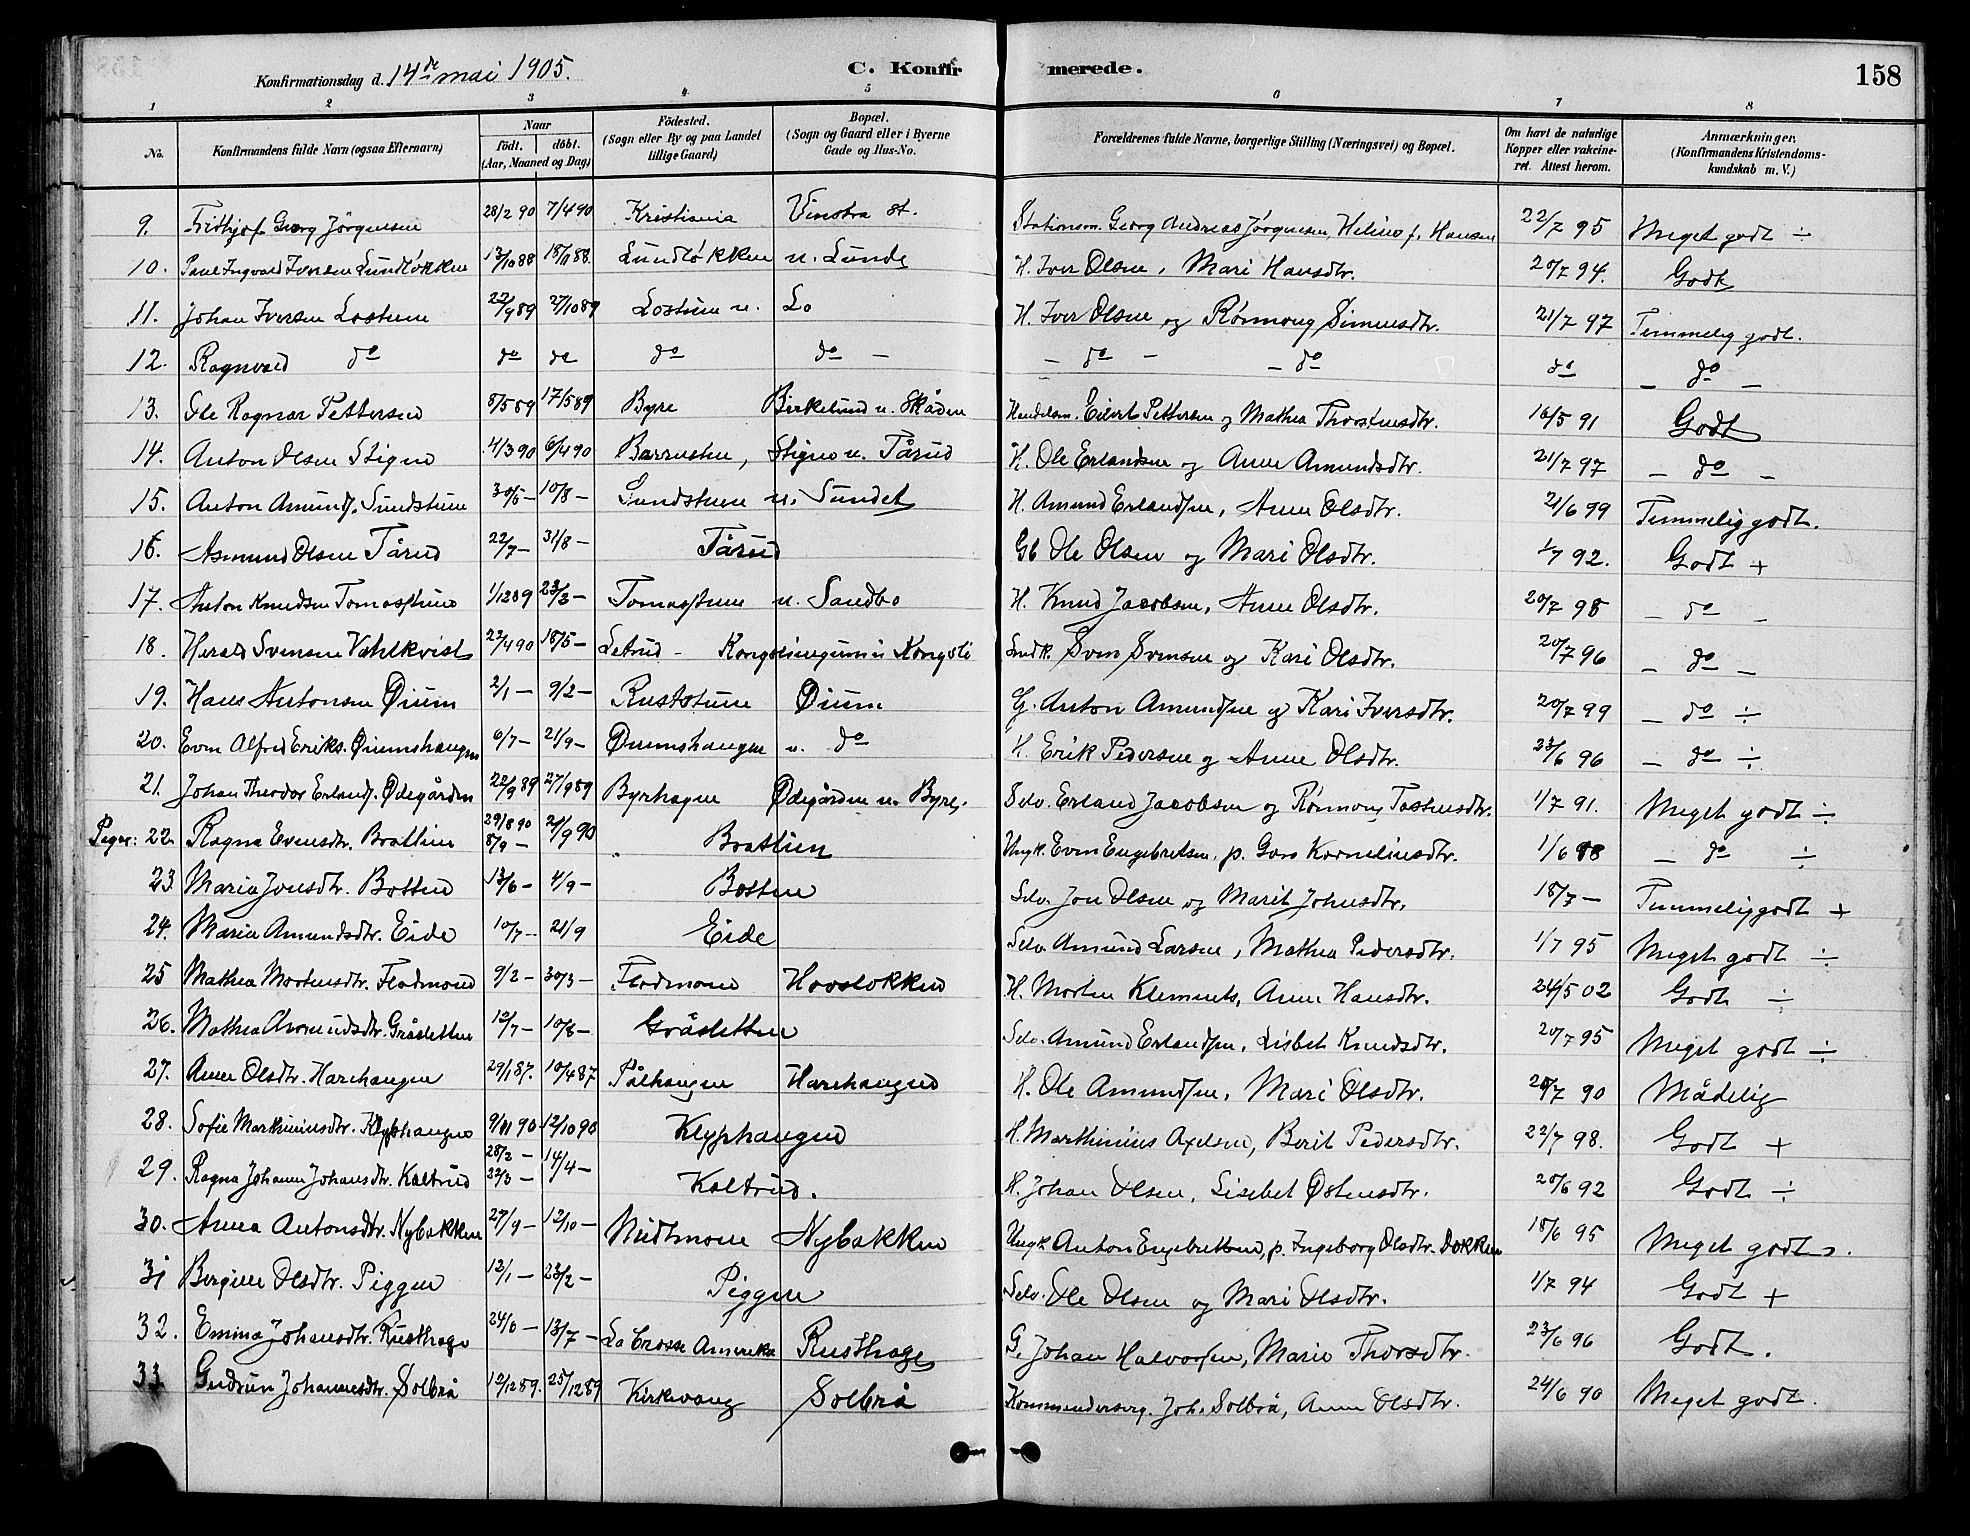 Konfirmationsdag d. 14de mai 1905. C. Konfirmerede. 158
1 2 3 4 5 6 7 8
No. Konfirmandens fulde Navn (ogsaa Efternavn) Naar födt. döbt. (Aar, Maaned og Dag) Födested. (Sogn eller By og paa Landet tillige Gaard) Bopæl. (Sogn og Gaard eller i Byerne Gade og Hus-No. Forældrenes fulde Navne, borgerlige Stilling (Næringsvei) og Bopæl. Om havt de naturlige Kopper eller vakcineret. Attest herom. Anmærkninger. (Konfirmandens Kristendomskundskab m. V.)
9. Frithjof Georg Jörgensen 28/2 90 7/4 90 Kristiania Vinstra st. Stationsm. Georg Andreas Jørgensen, Heline f. Hansen 22/7 95 Meget godt ÷
10. Paul Ingvald Iversen Lundløkken 13/10 88 18/11 88. Lundløkken u. Lunde H. Iver Olsen, Mari Hansdtr. 20/7 94. Godt
11. Johan Iversen Lostuen 22/9 89 27/10 89 Lostuen u. Lo H. Iver Olsen og Rønnoug Simensdtr. 21/7 97 Temmelig godt.
12. Ragnvald do do do do do – – do – – do do – do –
13. Ole Ragnar Pettersen 8/5 89 17/5 89 Byre Birkelund u. Skåden Handelsm. Eilert Pettersen og Mathea Thorstensdtr. 16/5 91 Godt
14. Anton Olsen Stigen 4/3 90 6/4 90 Barrusten, Stigen u. Tårud H. Ole Erlandsen og Anne Amundsdtr. 21/7 97 – do –
15. Anton Amunds. Sundstuen 30/5 – 10/8 – Sundstuen u. Sundet H. Amund Erlandsen, Anne Olsdtr. 21/6 99 Temmelig godt.
16. Asmund Olsen Tårud 22/7 – 31/8 – Tårud Gb Ole Olsen og Mari Olsdtr. 1/7 92. Godt +
17. Anton Knudsen Tomasstuen 1/12 89 23/2 – Tomasstuen u. Sandbo H. Knud Jacobsen, Anne Olsdtr. 20/7 98 – do –
18. Herald Svensen Vahlkvist 22/4 90 18/5 – Letrud – Kongsli Smdk. Sven Svensen og Kari Olsdtr. 20/7 96 – do –
19. Hans Antonsen Øium 2/1 – 9/2 – Ruststuen Øium G. Anton Amundsen og Kari Iversdtr. 20/7 99 – do ÷
20. Even Alfred Eriks. Øiumshaugen 6/7 – 21/9 – Øiumshaugen u. do H. Erik Pedersen og Anne Olsdtr. 23/6 96 – do ÷
21. Johan Theodor Erlands. Ødegården 22/9 89 27/9 89 Byrhagen Ødegården u. Byre. Selv. Erland Jacobsen og Rønnoug Tostensdtr. 1/7 91. Meget godt ÷
Piger: 22. Ragna Evensdtr. Brattlien 29/8 90 8/9 – 21/9 90 Brattlien Ungk. Even Engebretsen, p. Goro Korneliusdtr. 1/6 98 – do ÷
23 Maria Jonsdtr. Botten 13/6 – 4/9 – Botten Selv. Jon Olsen og Marit Johnsdtr. 18/7 – Temmelig godt +
24. Maria Amundsdtr. Eide 10/7 – 21/9 Eide Selv. Amund Larsen, Mathea Pedersdtr. 1/7 95 Meget godt ÷
25 Mathea Mortensdtr. Flodmoen 9/2 – 30/3 – Flodmoen Hovsløkken H. Morten Klemmets, Anne Hansdtr. 24/5 02 Godt ÷
26. Mathea Amundsdtr. Gråsletten 12/7 – 10/8 – Gråsletten Selv. Amund Erlandsen, Lisbet Knudsdtr. 20/7 95 Meget godt ÷
27. Anne Olsdtr. Harehaugen 29/1 87. 10/4 87 Pålhaugen Harehaugen H. Ole Amundsen, Mari Olsdtr. 20/7 90 Mådelig
28. Sofie Marthinusdtr. Klyphaugen 9/11 90 12/10 90 Klyphaugen H. Marthinius Axelsen, Berit Pedersdtr. 22/7 98. Godt +
29. Ragna Johanne Johansdtr. Kaltrud 28/2 – 22/3 – 14/4 – Kaltrud. H. Johan Olsen, Lisebet Østensdtr. 20/6 92 Godt ÷
30. Anna Antonsdtr. Nybakken 27/9 – 12/10 – Midtmoen Nybakken Ungk. Anton Engebretsen, p. Ingeborg Olsdtr. Dokken 18/6 95 Meget godt.
31 Bergitte Olsdtr. Piggen 12/1 – 23/2 – Piggen Selv. Ole Olsen og Mari Olsdtr. 1/7 94 Godt +
32. Emma Johansdtr. Rusthage 24/6 – 13/7 – La Crosse Amerika Rusthage G. Johan Halvorsen, Marie Thorsdtr. 23/6 96 Godt.
33 Gudrun Johannesdtr. Solbrå 12/12 89. 25/12 89 Kirkevang Solbrå Kommunderserg. Joh. Solbrå, Anne Olsdtr. 24/6 90 Meget godt.